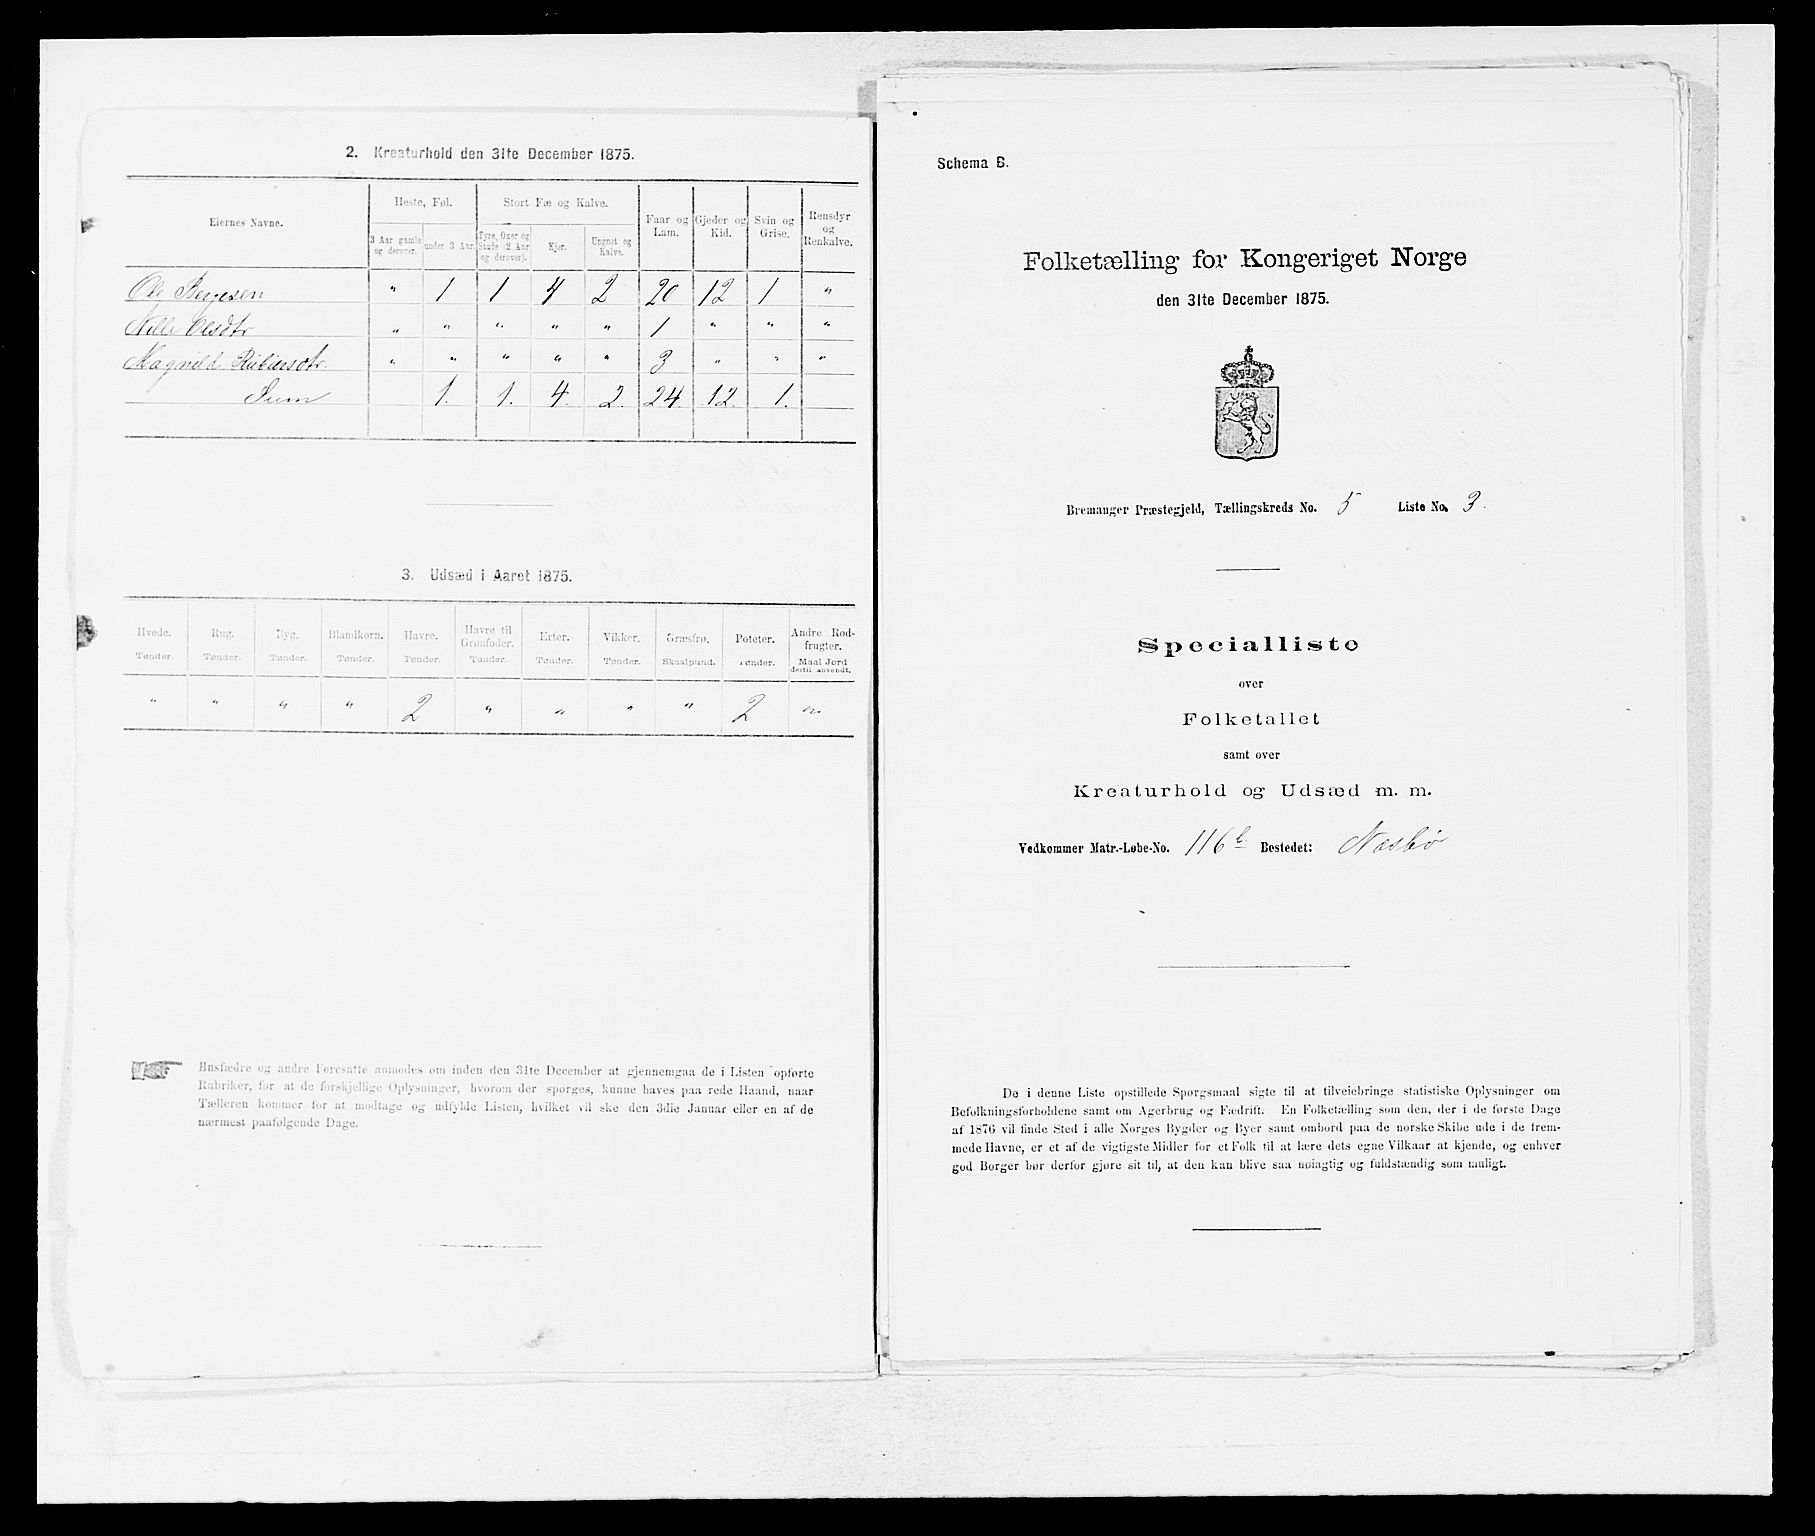 2. Kreaturhold den 31te December 1875.
Eiernes Navne.
Heste, Føl.
Stort Fæ og Kalve.
Faar og Lam.
Gjeder og Kid.
Svin og Grise.
Rensdyr og Renkalve.
3 Aar gamle og derover.
under 3 Aar.
Tyre, Oxer og Stude (2 Aar og derover).
Kjør.
Ungnet og Kalve.
Ole Bergesen " 1 1 4 2 20 12 1 "
Nille Olsdtr " " " " " 1 " " "
Magnild Rubensdtr. " " " " " 3 " " "
Sum 1. 1. 4. 2. 24. 12. 1.
3. Udsæd i Aaret 1875.
Hvede. Rug. Byg. Blandkorn. Havre. Havre til Grønfoder. Erter. Vikker. Græsfrø. Poteter. Andre Rodfrugter.
Tønder. Tønder. Tønder. Tønder. Tønder. Tønder. Tønder. Tønder. Skaalpund. Tønder. Maal Jord dertil anvendt.
" " " " 2 " " " " 2 "
Husfædre og andre Foresatte anmodes om inden den 31te December at gjennemgaa de i Listen opførte
Rubriker, for at de forskjellige Oplysninger, hvorom der spørges, kunne haves paa rede Haand, naar
Tælleren kommer for at modtage og udfylde Listen, hvilket vil ske den 3die Januar eller en af de
nærmest paafølgende Dage.
Schema B.
Folketælling for Kongeriget Norge
den 31te December 1875.
Bremanger Præstegjeld, Tællingskreds No. 5 Liste No. 3.
Specialliste
over
Folketallet
samt over
Kreaturhold og Udsæd m. m.
Vedkommer Matr.-Løbe-No. 116b Bostedet: Næsbø
De i denne Liste opstillede Spørgsmaal sigte til at tilveiebringe statistiske Oplysninger om
Befolkningsforholdene samt om Agerbrug og Fædrift. En Folketælling som den, der i de første Dage
af 1876 vil finde Sted i alle Norges Bygder og Byer samt ombord paa de norske Skibe ude i de frem-
mede Havne, er et af de vigtigste Midler for et Folk til at lære dets egne Vilkaar at kjende, og enhver
god Borger bør derfor gjøre sit til, at den kan blive saa nøiagtig og fuldstændig som muligt.